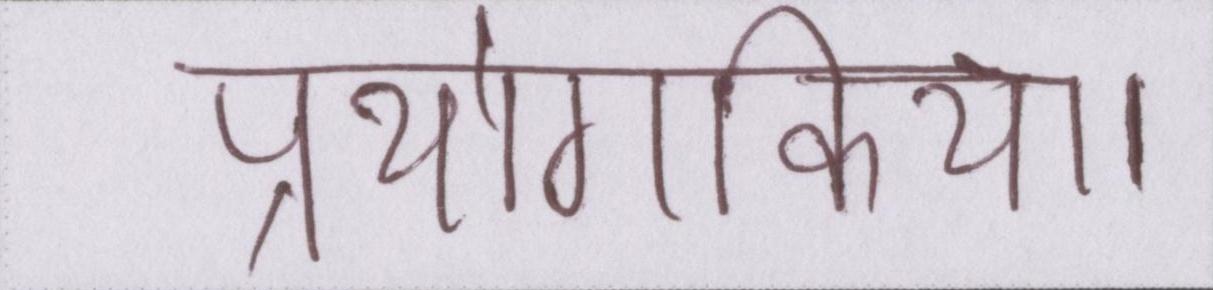 प्रयोग किया।